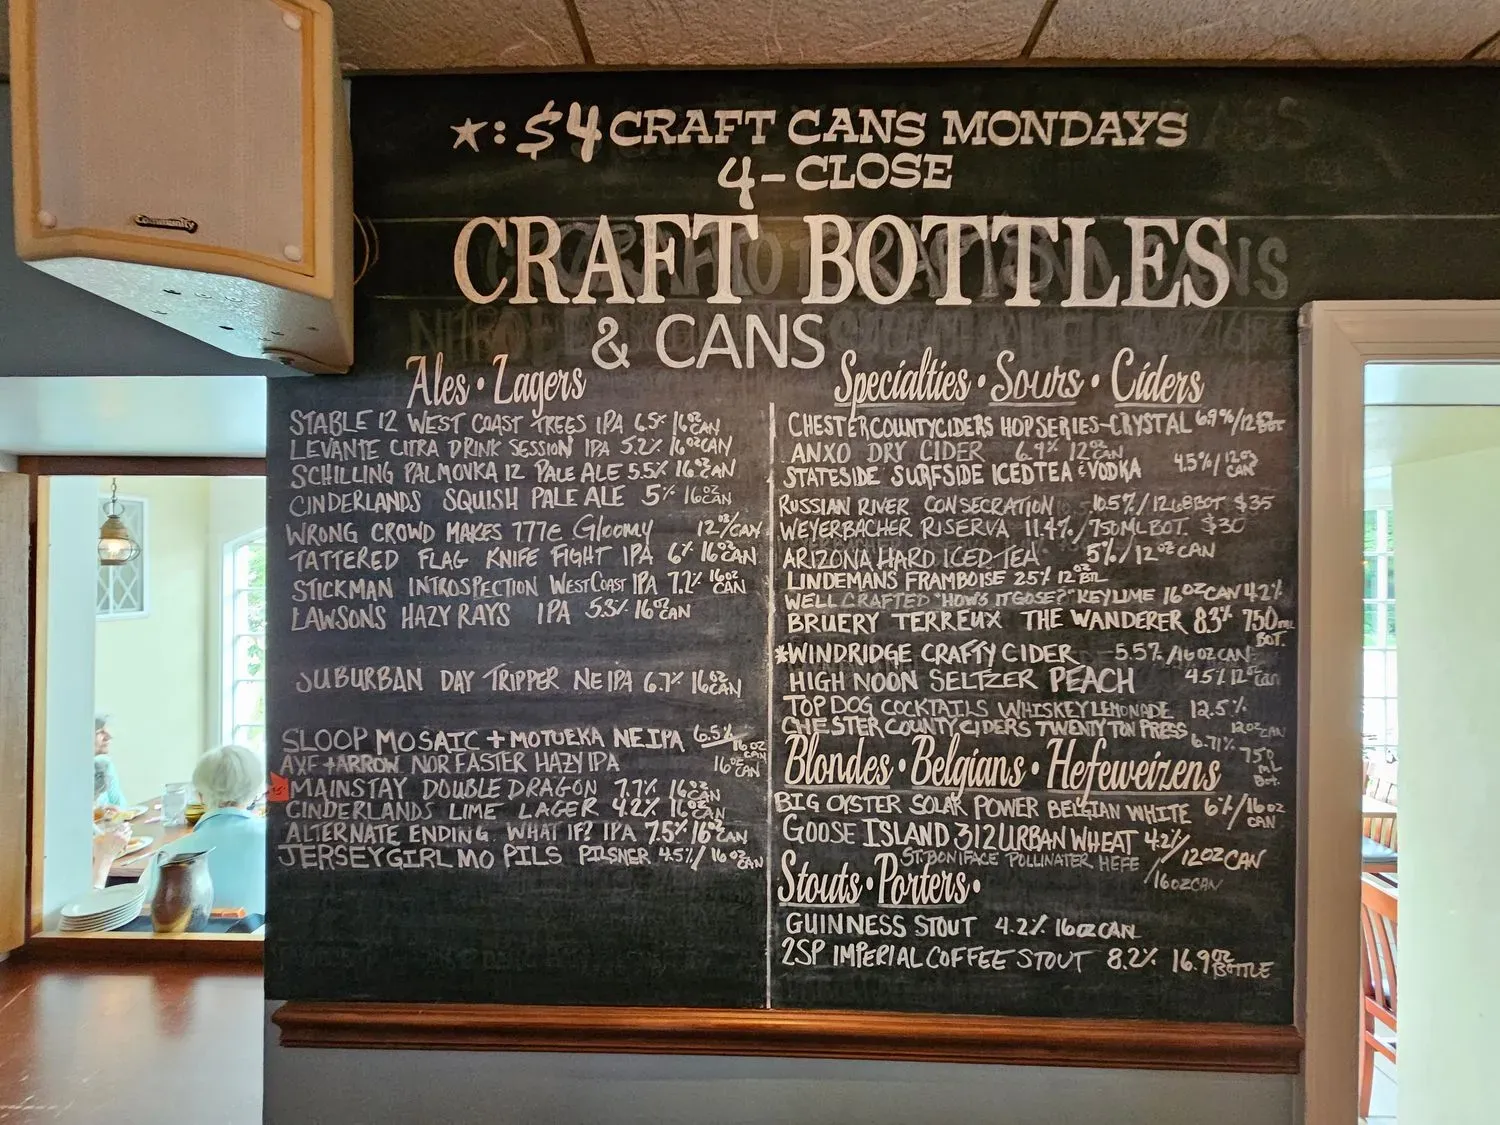 Community
★: $4 CRAFT CANS MONDAYS
4-CLOSE
CRAFT BOTTLES
& CANS
Ales · Lagers
STABLE 12 WEST COAST TREES IPA 6.5% 16OZ CAN
LEVANTE CITRA DRINK SESSION IPA 5.2% 16OZ CAN
SCHILLING PALMOVKA 12 PALE ALE 5.5% 16OZ CAN
CINDERLANDS SQUISH PALE ALE 5% 16OZ CAN
WRONG CROWD MAKES 777e Gloomy 12OZ/CAN
TATTERED FLAG KNIFE FIGHT IPA 6% 16OZ CAN
STICKMAN INTROSPECTION WEST COAST IPA 7.2% 16OZ CAN
LAWSONS HAZY RAYS IPA 5.3% 16OZ CAN
SUBURBAN DAY TRIPPER NE IPA 6.7% 16OZ CAN
SLOOP MOSAIC + MOTUEKA NEIPA 6.5% 16OZ CAN
AXE + ARROW NOR EASTER HAZY IPA 16OZ CAN
MAINSTAY DOUBLE DRAGON 7.7% 16OZ CAN
CINDERLANDS LIME LAGER 4.2% 16OZ CAN
ALTERNATE ENDING WHAT IF? IPA 7.5% 16OZ CAN
JERSEY GIRL MO PILS PILSNER 4.5%/16OZ CAN
Specialties · Sours · Ciders
CHESTERCOUNTYCIDERS HOP SERIES-CRYSTAL 6.9%/12OZ BOT
ANXO DRY CIDER 6.9% 12OZ CAN
STATESIDE SURFSIDE ICED TEA & VODKA 4.5%/12OZ CAN
RUSSIAN RIVER CONSECRATION 10.5%/12.68BOT $35
WEYERBACHER RISERVA 11.4%/750ML BOT. $30
ARIZONA HARD ICED TEA 5%/12OZ CAN
LINDEMANS FRAMBOISE 2.5% 12OZ BTL
WELL CRAFTED "HOW'S IT GOSE?" KEY LIME 16OZ CAN 4.2%
BRUERY TERREUX THE WANDERER 8.3% 750ML BOT.
*WINDRIDGE CRAFTY CIDER 5.5%/16OZ CAN
HIGH NOON SELTZER PEACH 4.5% 12OZ Can
TOP DOG COCKTAILS WHISKEY LEMONADE 12.5% 12OZ CAN
CHESTER COUNTY CIDERS TWENTY TON PRESS 6.71% 750 ML Bot.
Blondes · Belgians · Hefeweizens
BIG OYSTER SOLAR POWER BELGIAN WHITE 6%/16OZ CAN
GOOSE ISLAND 312 URBAN WHEAT 4.2%/12OZ CAN
ST. BONIFACE POLLINATER HEFE /16OZ CAN
Stouts · Porters ·
GUINNESS STOUT 4.2% 16OZ CAN
2SP IMPERIAL COFFEE STOUT 8.2% 16.9OZ BOTTLE